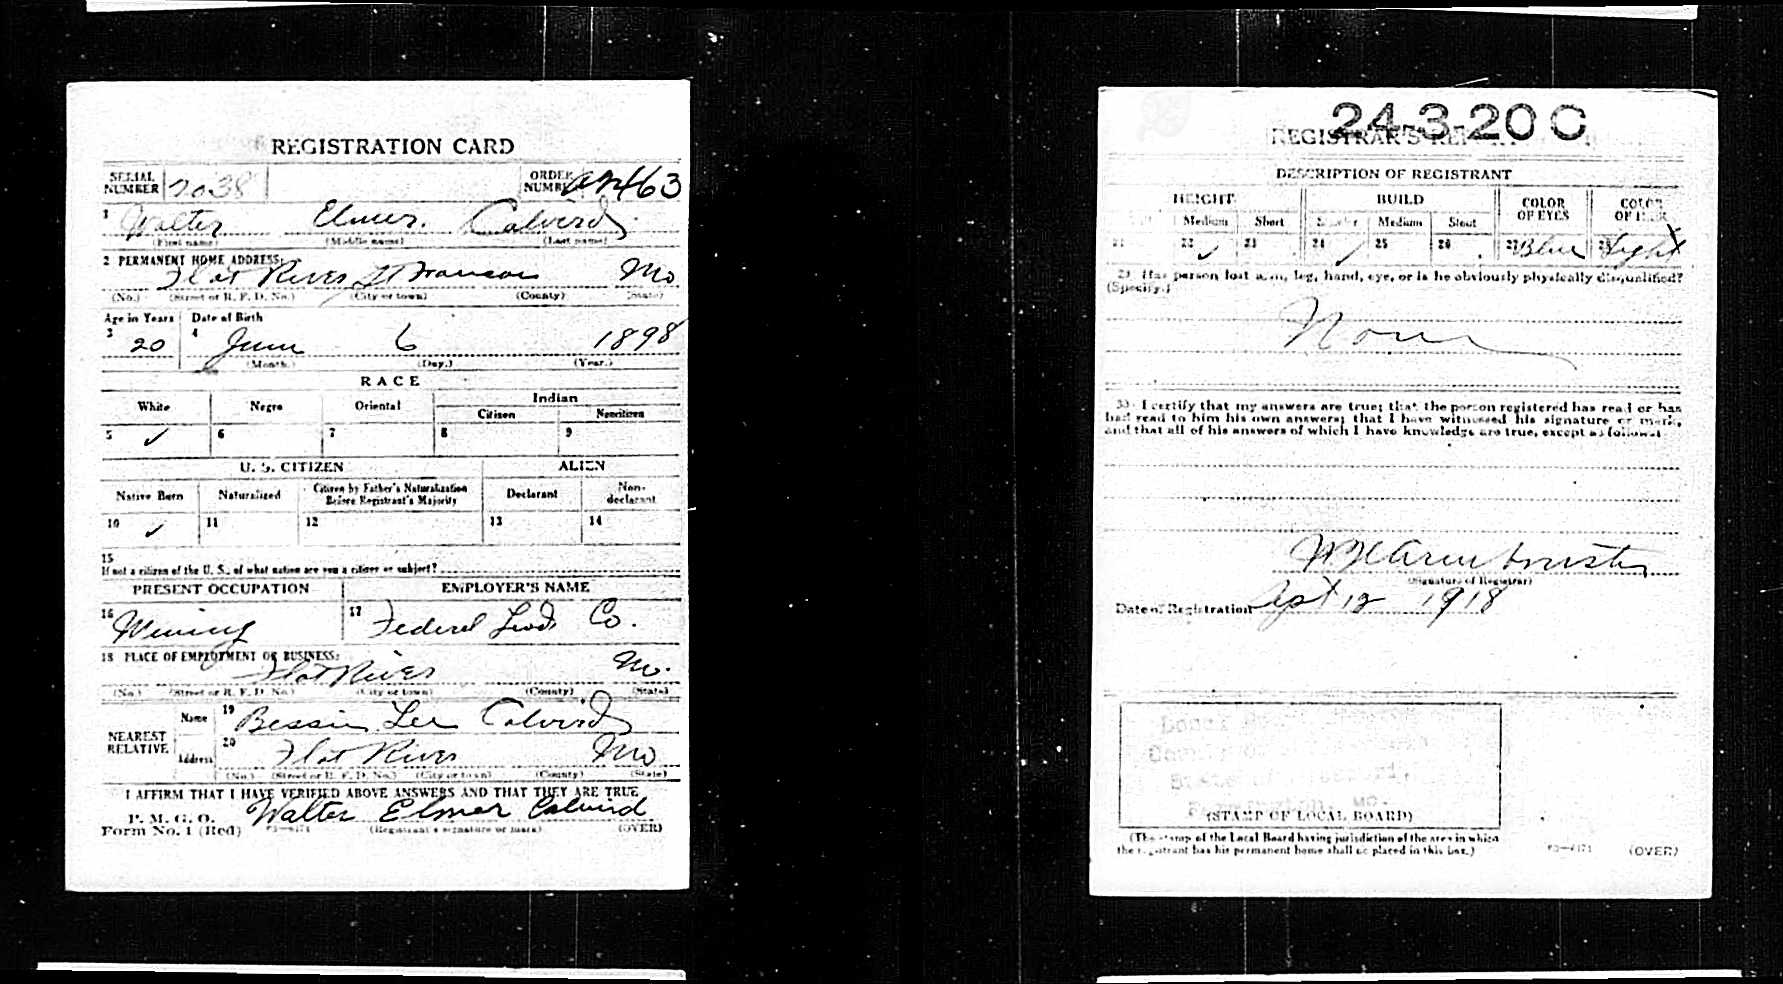 REGISTRATION CARD
SERIAL NUMBER 2038 ORDER NUMBER A2463
1 Walter Elmer. Calvird
(First name) (Middle name) (Last name)
2 PERMANENT HOME ADDRESS:
Flat River St Francois Mo
(No.) (Street or R. F. D. No.) (City or town) (County) (State)
Age in Years Date of Birth
3 20 4 June 6 1898
(Month.) (Day.) (Year.)
RACE
White Negro Oriental Indian
Citizen Noncitizen
5 ✓ 6 7 8 9
U. S. CITIZEN ALIEN
Native Born Naturalized Citizen by Father's Naturalization Before Registrant's Majority Declarant Non-declarant
10 ✓ 11 12 13 14
15
If not a citizen of the U. S., of what nation are you a citizen or subject?
PRESENT OCCUPATION EMPLOYER'S NAME
16 Mining 17 Federal Lead Co.
18 PLACE OF EMPLOYMENT OR BUSINESS:
Flat River Mo.
(No.) (Street or R. F. D. No.) (City or town) (County) (State)
NEAREST RELATIVE
Name 19 Bessie Lee Calvird
Address 20 Flat River Mo
(No.) (Street or R. F. D. No.) (City or town) (County) (State)
I AFFIRM THAT I HAVE VERIFIED ABOVE ANSWERS AND THAT THEY ARE TRUE
P. M. G. O.
Form No. 1 (Red) Walter Elmer Calvird
(Registrant's signature or mark) (OVER)
24-3-20 C
REGISTRAR'S REPORT
DESCRIPTION OF REGISTRANT
HEIGHT BUILD COLOR OF EYES COLOR OF HAIR
Medium Short Slender Medium Stout
21 22 ✓ 23 24 ✓ 25 26 27 Blue 28 Light
29 Has person lost arm, leg, hand, eye, or is he obviously physically disqualified?
(Specify.)
None
30 I certify that my answers are true; that the person registered has read or has
had read to him his own answers; that I have witnessed his signature or mark,
and that all of his answers of which I have knowledge are true, except as follows:
(Signature of Registrar)
Date of Registration Sept 12 1918
(STAMP OF LOCAL BOARD)
(The stamp of the Local Board having jurisdiction of the area in which
the registrant has his permanent home shall be placed in this box.)
(OVER)